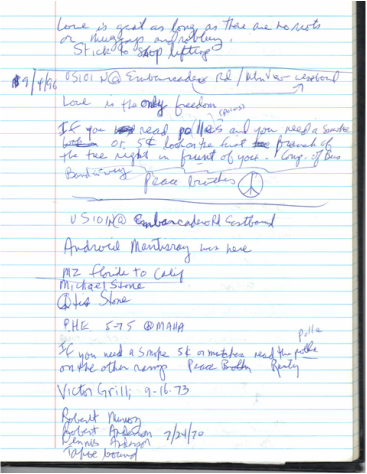 Love is great as long as there are no riots
or muggings and robbery.
Stick to shop lifting
9/4/96 US101 N@ Embarcadero Rd / westbound
Love is the only freedom
(poles)
If you read polles and you need a smoke
or 5¢ look on the first branch of
the tree right in frunt of you. Cong. of Bus
Peace brothers
US101N@ Embarcadero Rd Eastbound
Android Monterey was here
MZ Floride to Calif
Michael Stone
Stone
PHE 5-75 OMAHA
polle
If you need a smoke 5¢ or matches read the polke
on the other ramp. Peace Brother Rusty
Victor Grill; 9-16-73
Robert
Robert Anderson 7/24/70
Dennis Anderson
Tahoe bound